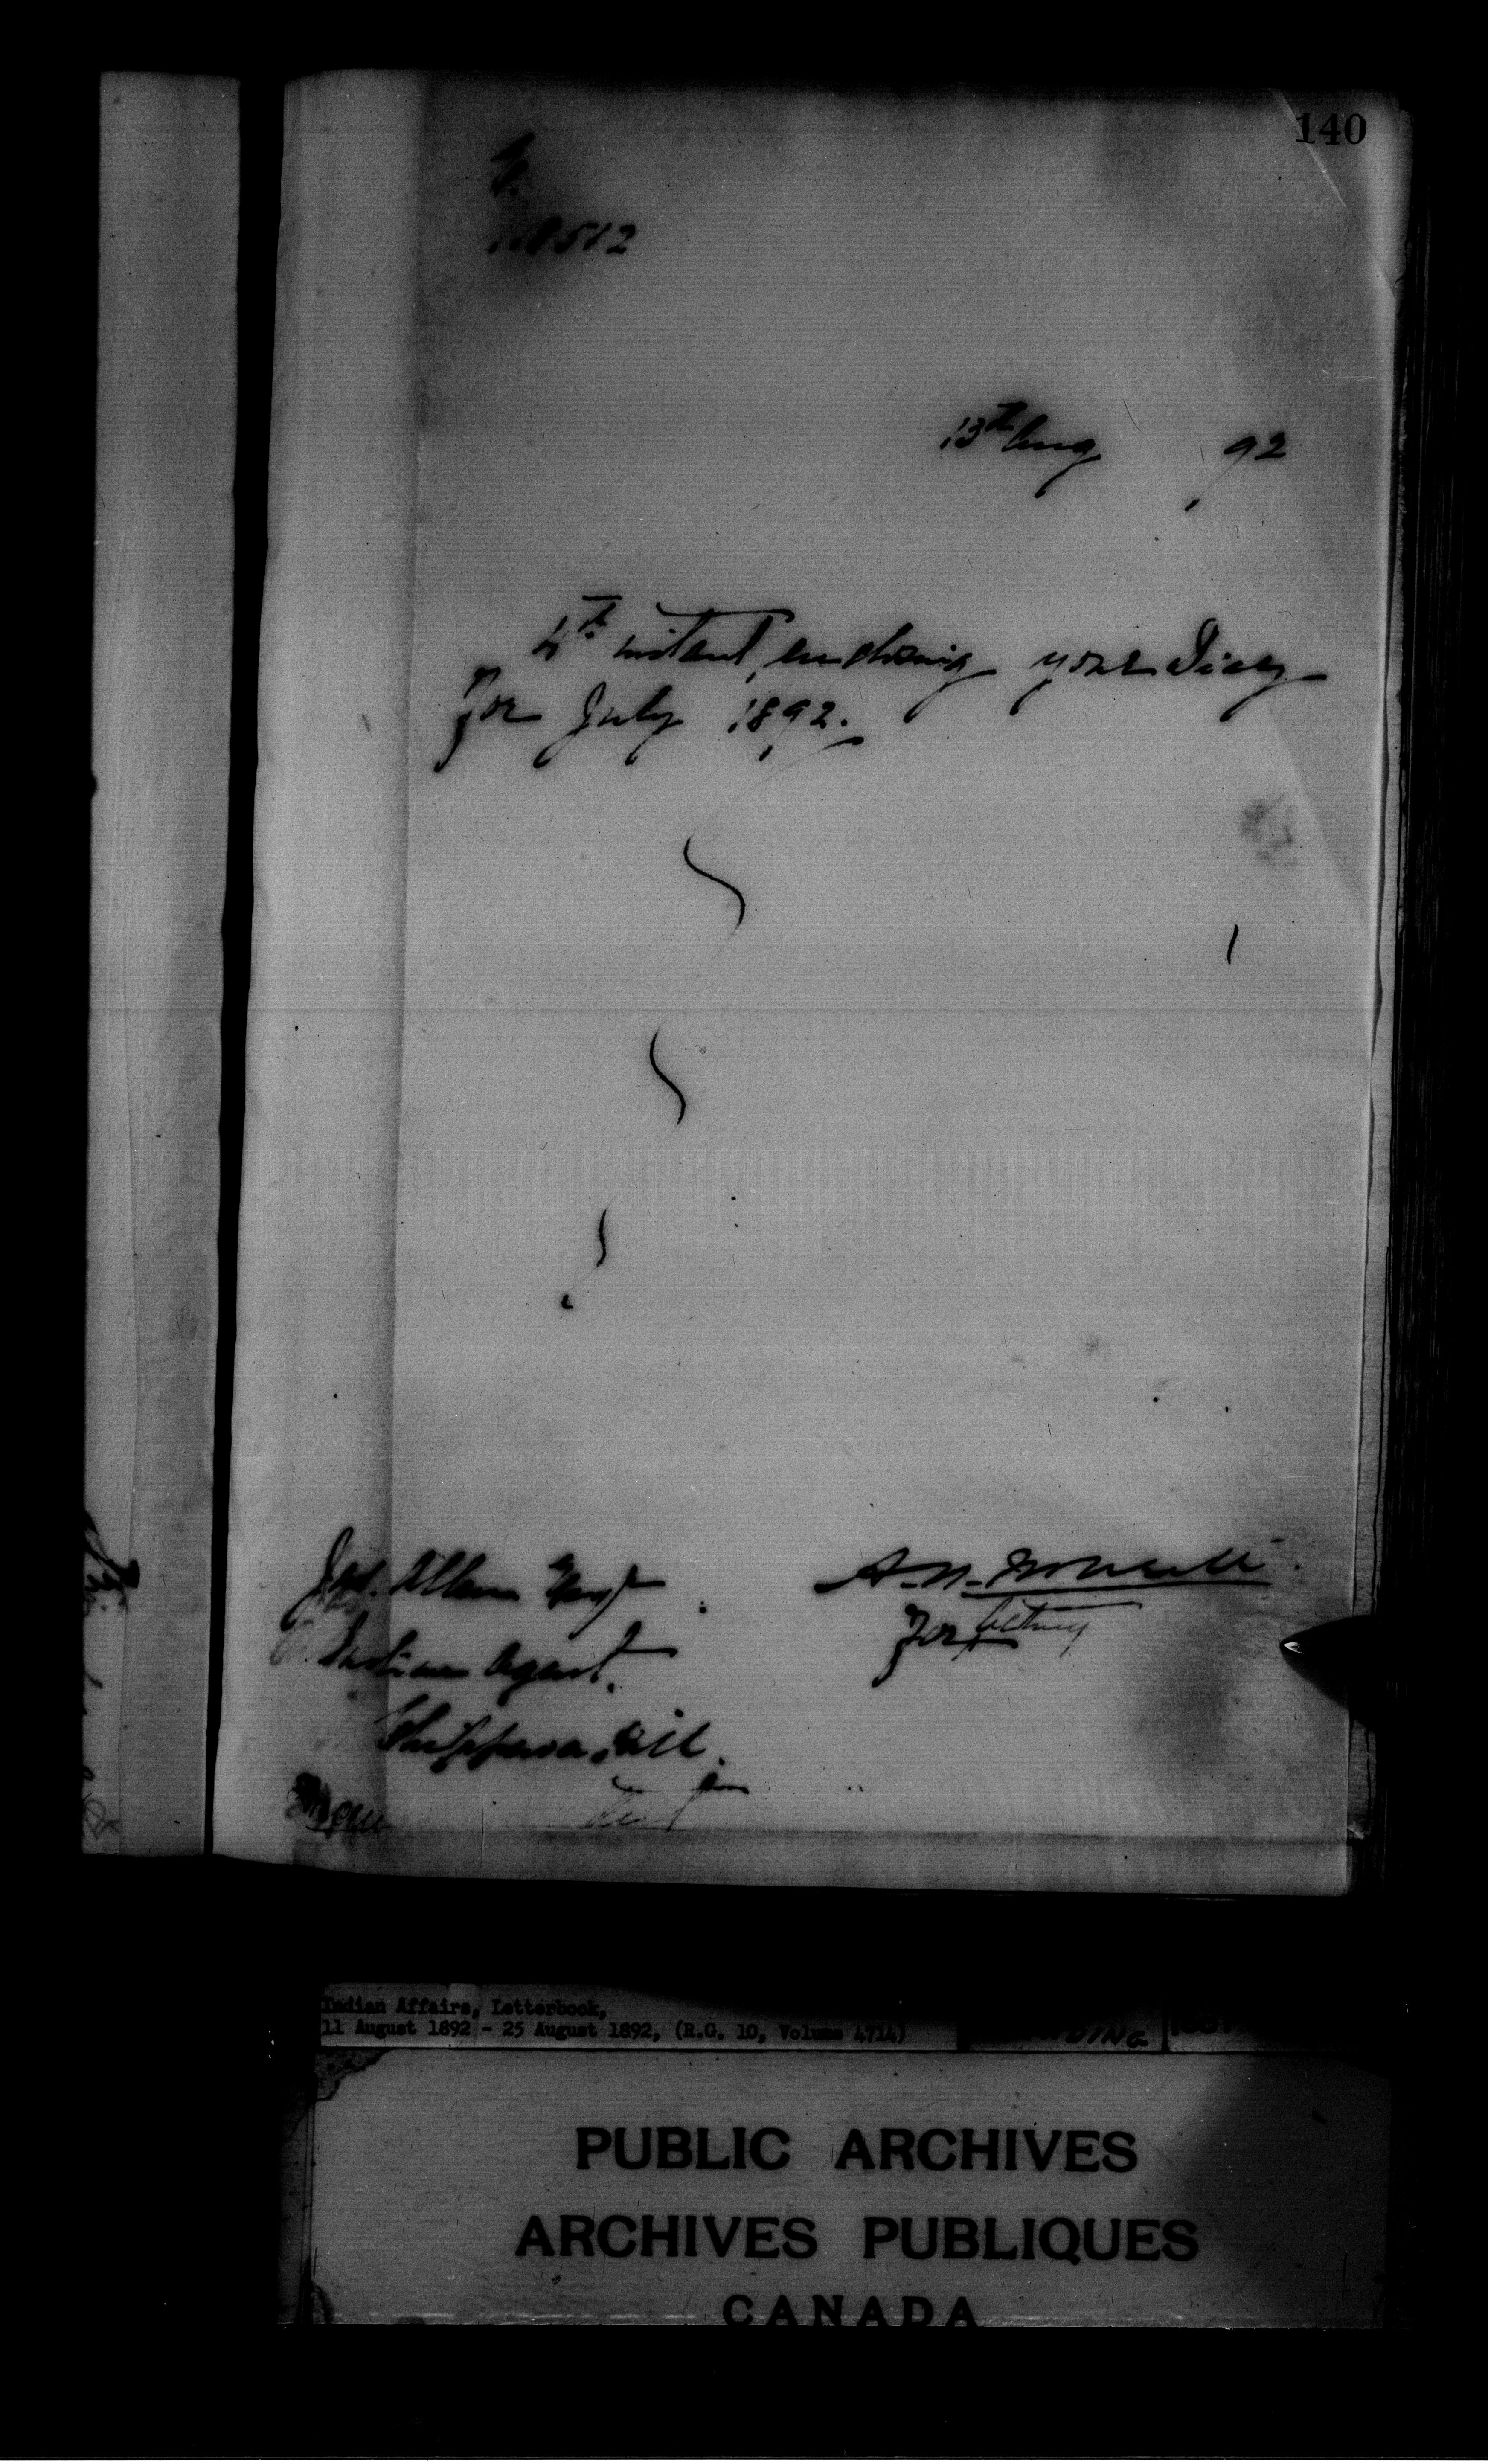 140
13th Aug 92
4th instant, enclosing your Diary
for July 1892.
Jas. Allan Esq
A. N. McNeill
For Acting
Indian Agent,
Chippewa Hill.
Indian Affairs, Letterbook,
11 August 1892 - 25 August 1892, (R.G. 10, Volume 4714)
PUBLIC ARCHIVES
ARCHIVES PUBLIQUES
CANADA